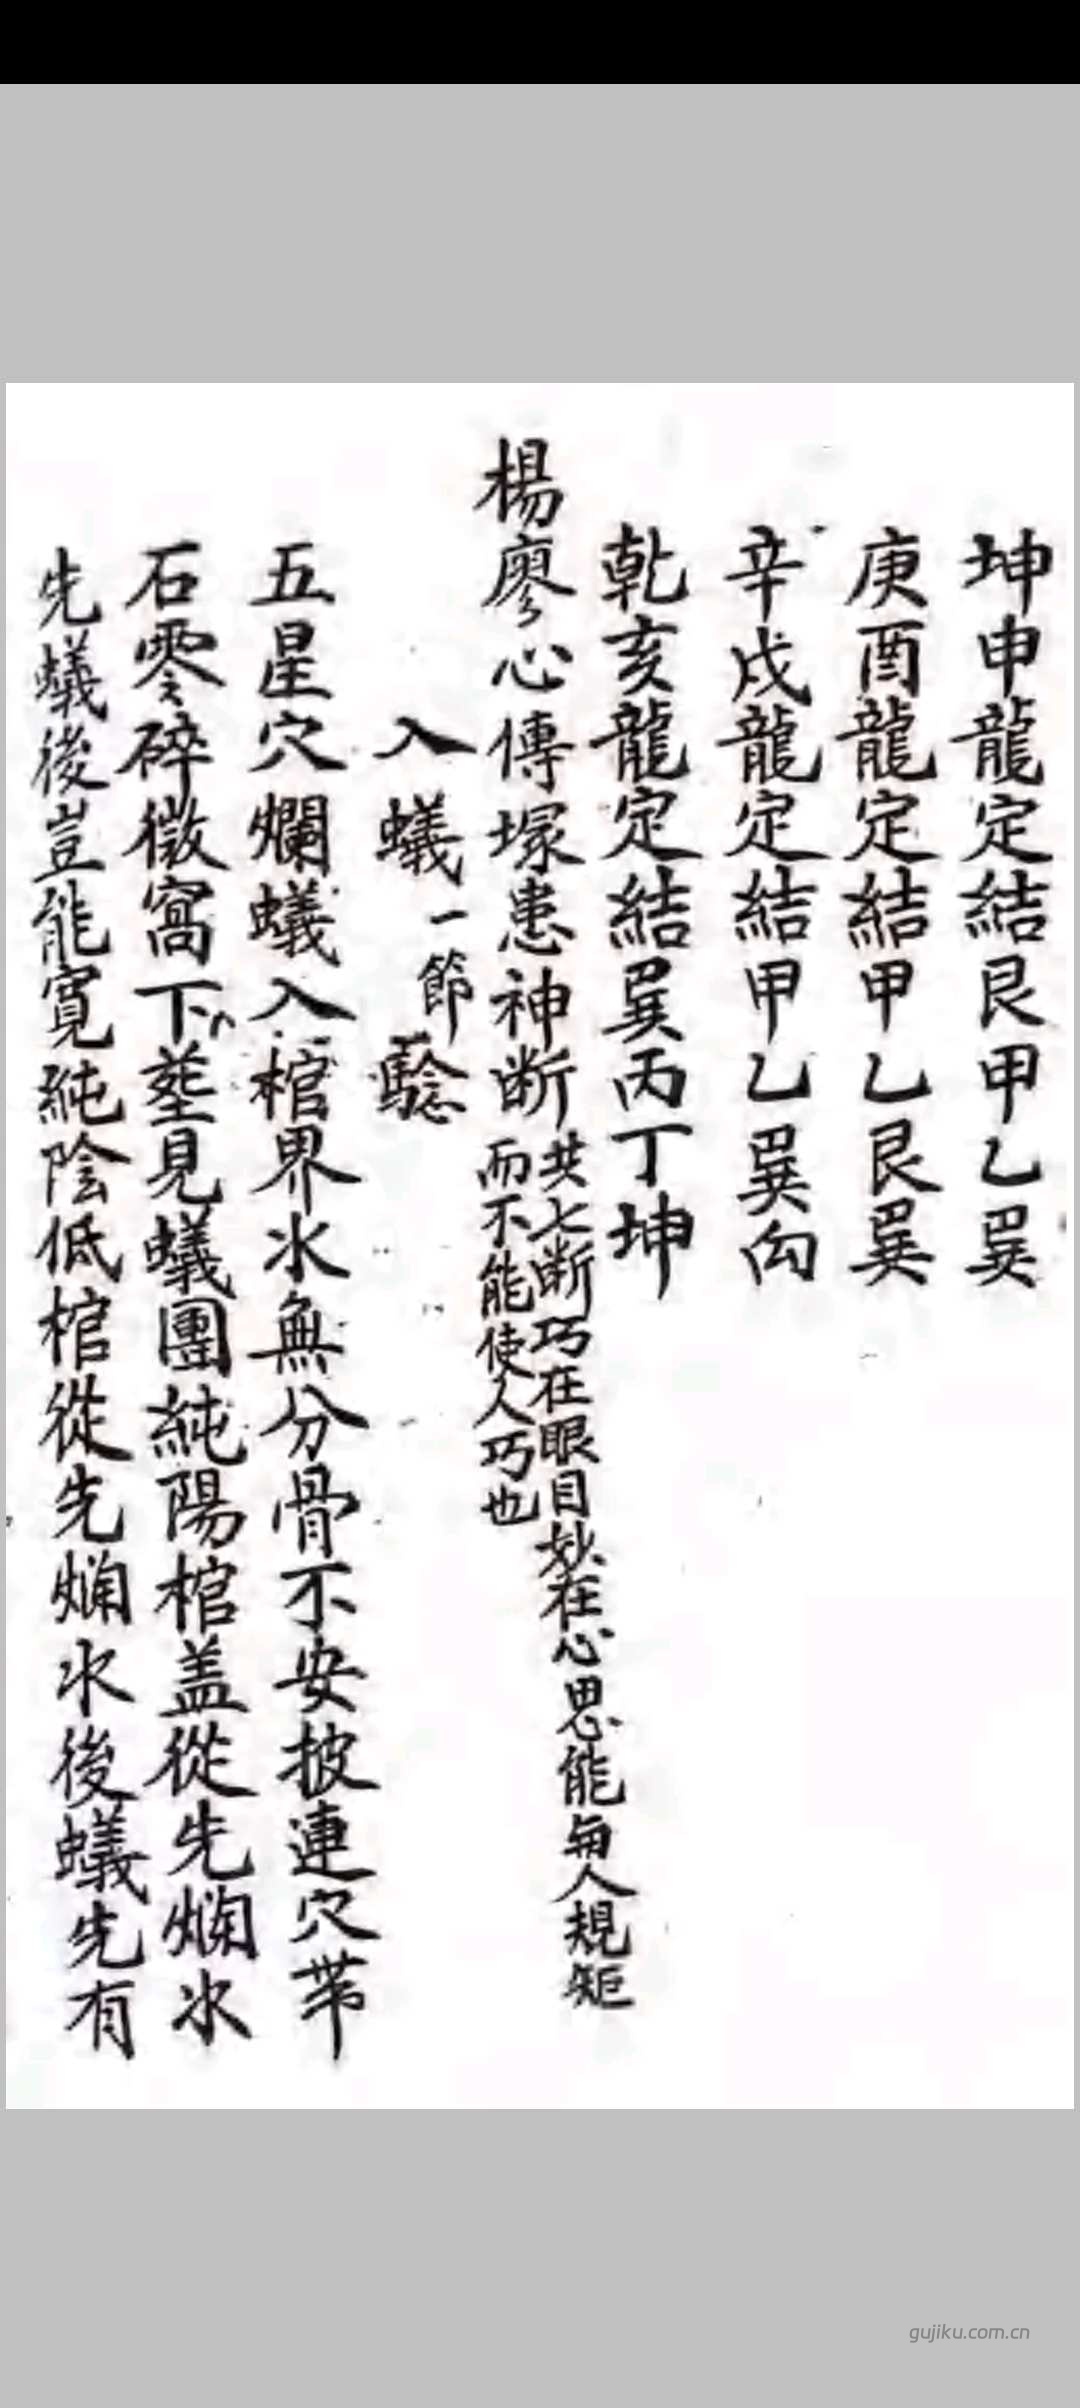 坤申龍定結艮甲乙巽
庚酉龍定結甲乙艮巽
辛戌龍定結甲乙巽向
乾亥龍定結巽丙丁坤
楊廖心傳塚患神断
共七断巧在眼目妙在心思能與人規矩
而不能使人巧也
入蟻一節驗
五星穴爛蟻入棺界水無分骨不安披連穴带
石零碎微窩下塟見蟻團純陽棺盖從先爛水
先蟻後豈能寛純陰低棺從先爛水後蟻先有
gujiku.com.cn